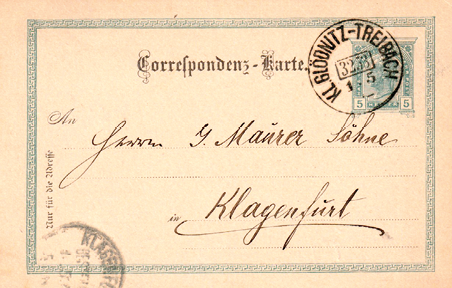 Correspondenz-Karte.
KL. GLÖDNITZ-TREIBACH
1 5
5 5
An
Herrn J. Maurer Söhne
in Klagenfurt
Nur für die Adresse
KLAGENFU